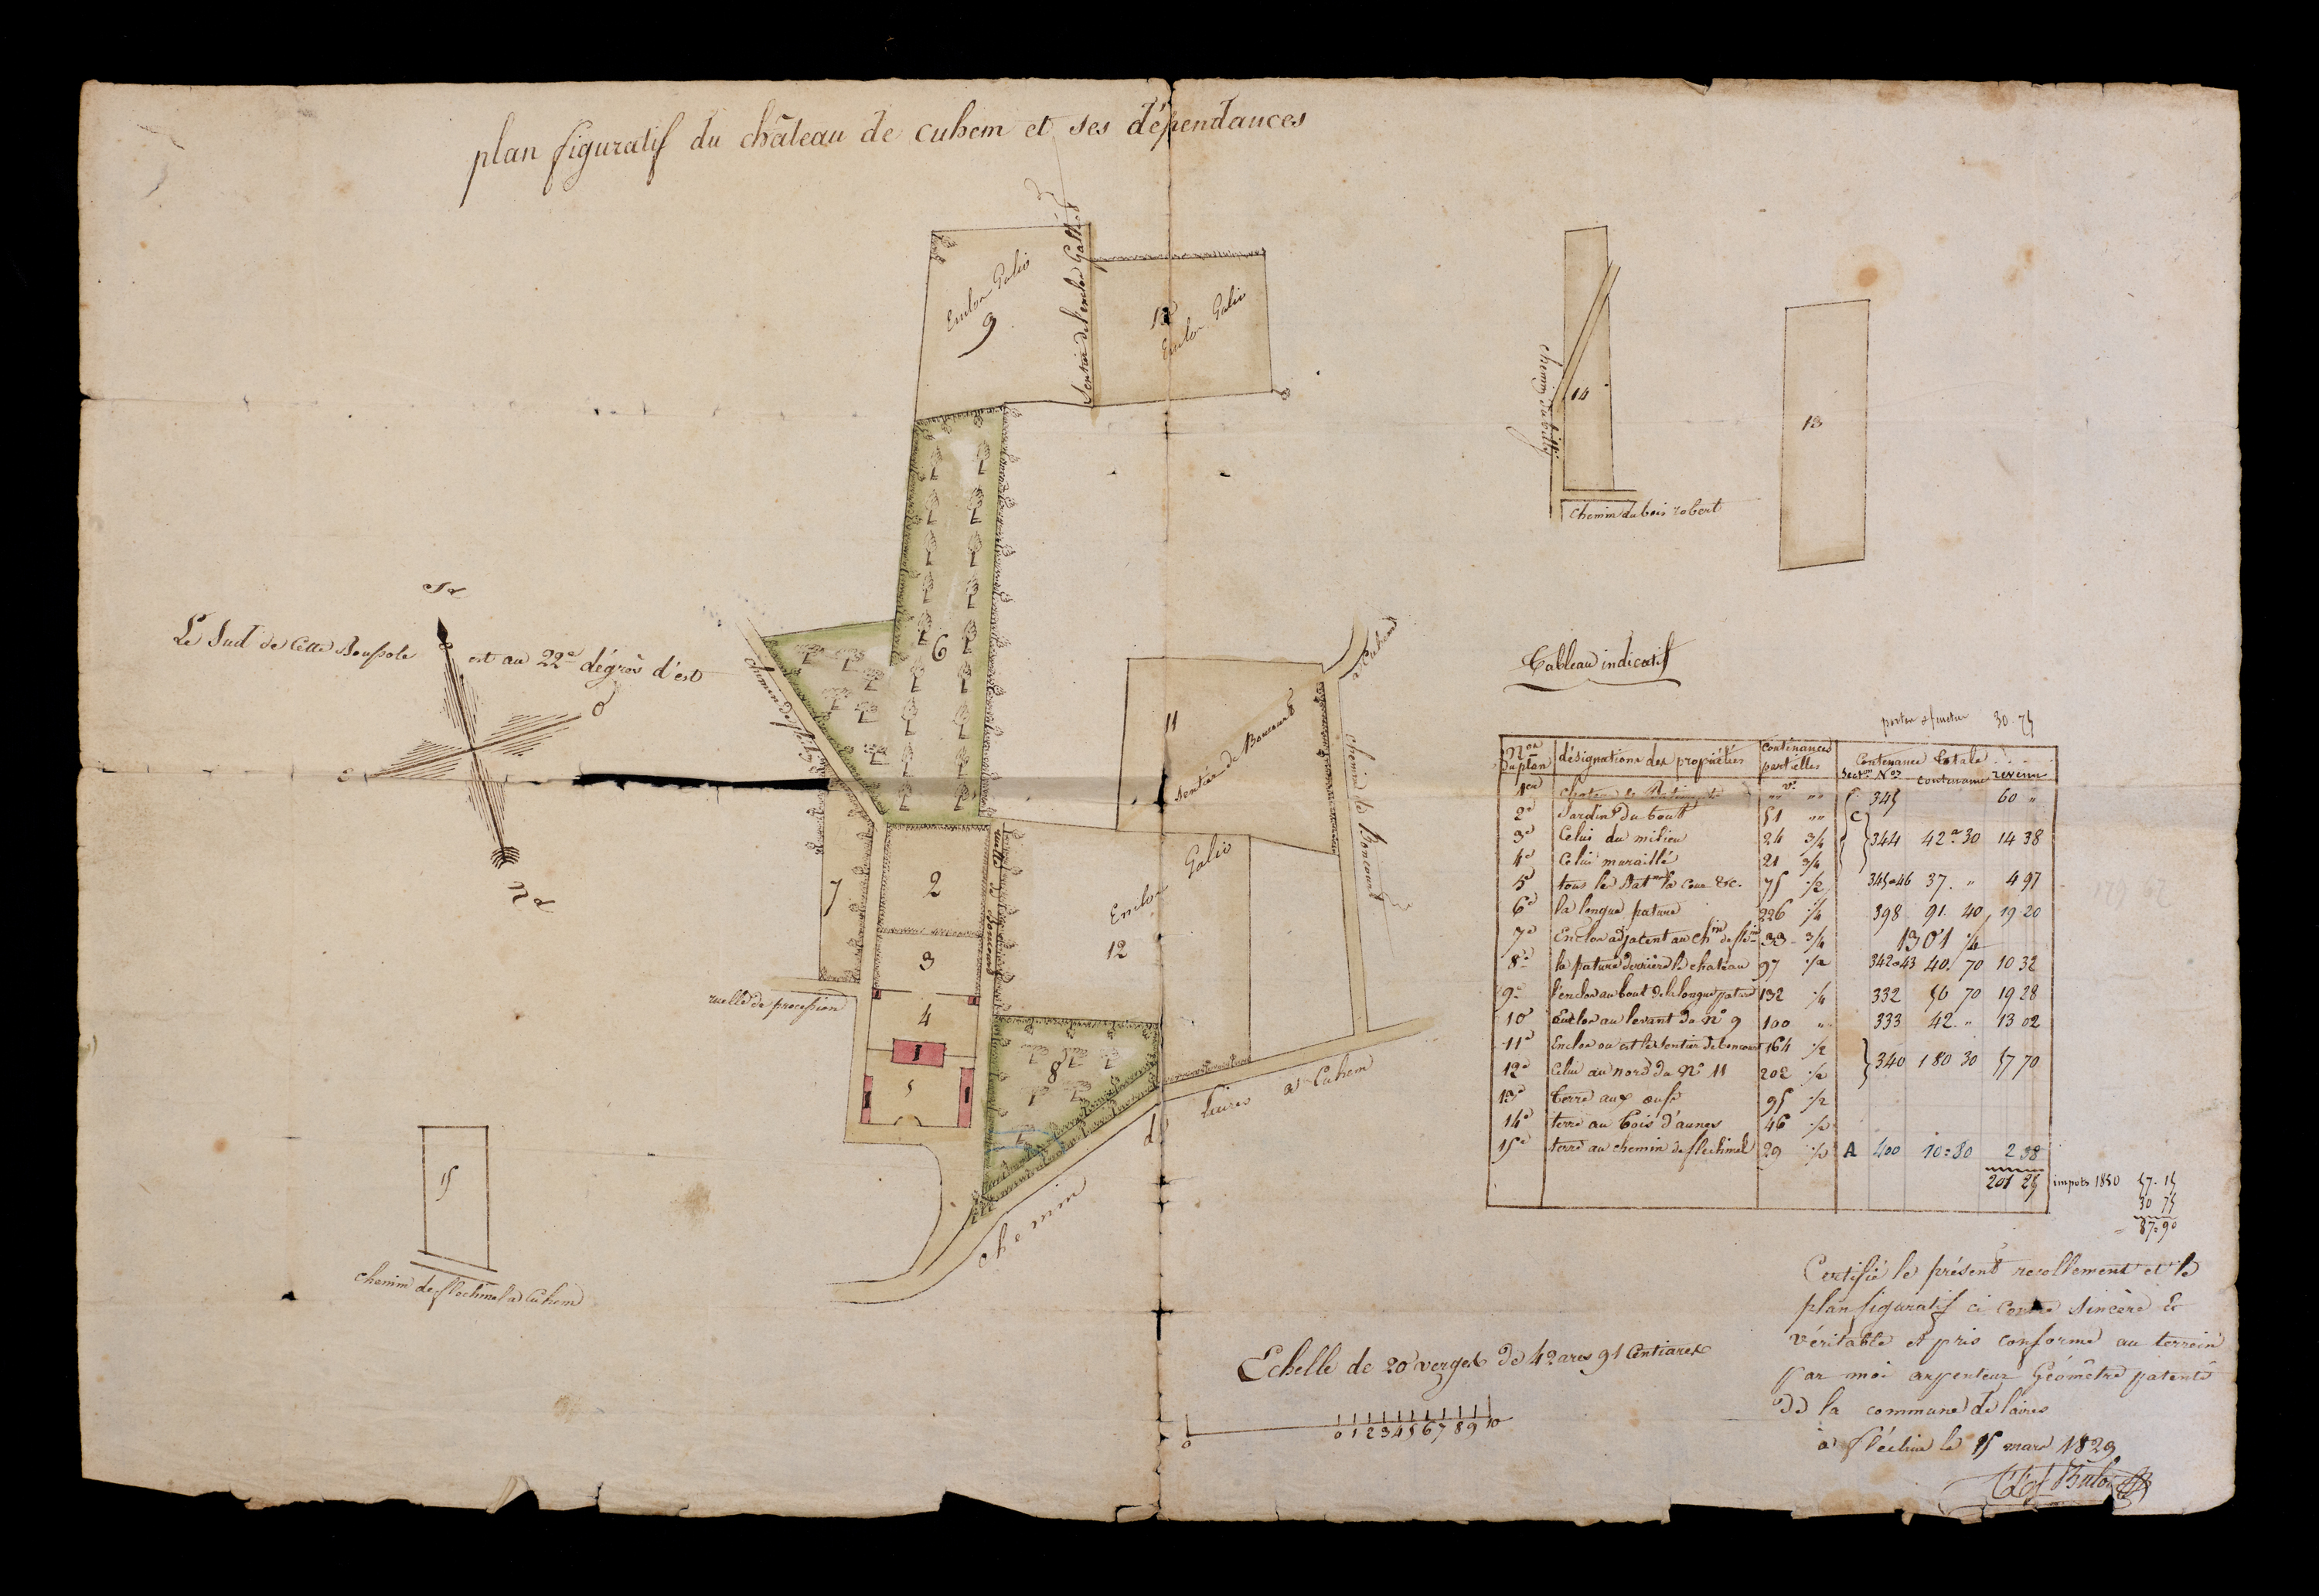 plan figuratif du château de cuhem et ses dépendances
Enclos Galio
9
Sentier de l'enclos Galio
12
Enclos Galio
14
chemin du bois robert
13
Sd
Le Sud de Cette Boussole est au 22e dégrès d'est
O
E
Nd
6
11
Sentier de Boncourt
a Cuhem
chemin de Boncourt
7
2
3
4
1
5
1
1
ruelle de procession
ruelle de Boncourt
Enclos Galio
12
8
chemin de laires a Cuhem
15
chemin de flechinel a Cuhem
Tableau indicatif
30 - 75
Nos du plan
désignations des propriétés
Contenances partielles
Contenance totale
Secton Nos
contenance
revenu
1er Chateau C 345 60 "
2e Jardin du bout 51 "" C
3e Celui du milieu 24 3/4 344 42a 30 14 38
4e Celui muraillé 21 3/4
5e tous les Batmts la Cour &c. 75 1/2 345 a 46 37. " 4 97
6e la longue pature 226 1/4 398 91. 40 19 20
7e Enclos adjacent au chin de flé 33 - 3/4 1301 1/4
8e la pature derrière le chateau 97 1/2 342 a 43 40. 70 10 32
9e l'enclos au bout de la longue pature 132 1/4 332 56 70 19 28
10e Enclos au levant du n° 9 100 " 333 42. " 13 02
11e Enclos ou est le sentier de boncourt 164 1/2
12e Celui au nord du N° 11 202 1/2 340 180 30 57 70
13e terre aux œufs 95 1/2
14e terre au bois d'aunes 46 1/2
15e terre au chemin de flechinel 29 1/2 A 400 10=80 2 38
201 25
impots 1850 57 - 15
30 75
87=90
Certifié le présent recollement et le
plan figuratif ci contre Sincère &
véritable et pris conforme au terrein
par moi arpenteur Géomètre patenté
de la commune de laires
a fléchin le 15 mars 1829
Echelle de 20 verges de 42 ares 91 Centiares
0 0 1 2 3 4 5 6 7 8 9 10